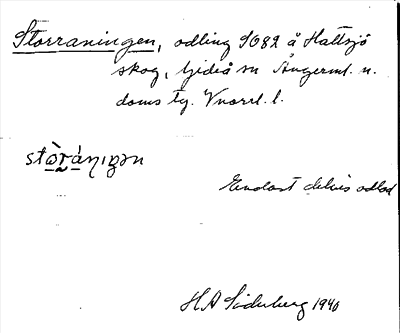 Storraningen, odling SO82 å Hattsjö
skog, Gideå sn Ångerml. n.
doms tg. Vnorrl. l.
stò̱r̭á̱ɳıŋən
Endast delvis odlad
H A Söderberg 1940